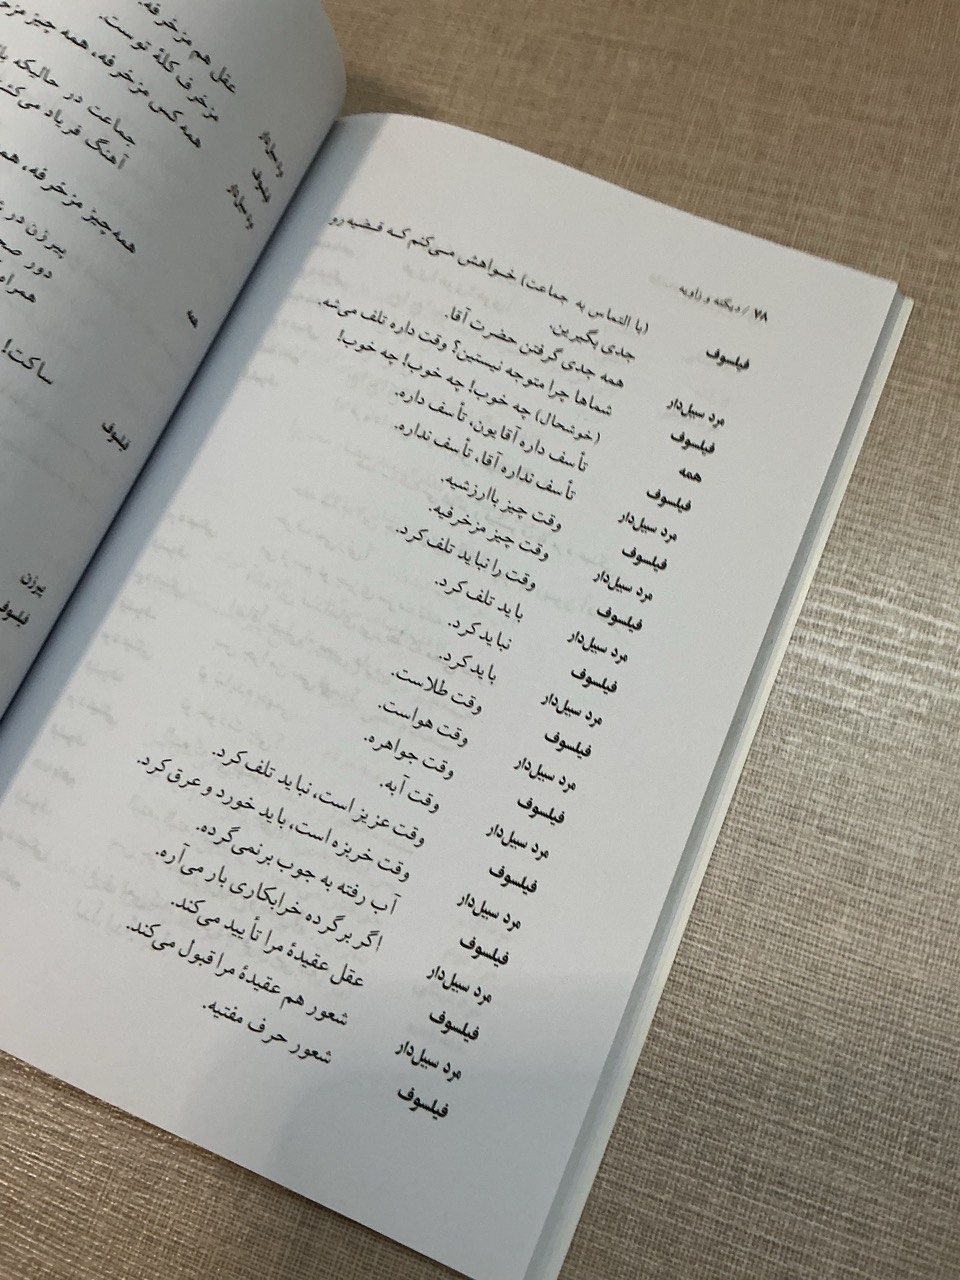 ۷۸ / دیکته و زاویه
فیلسوف (با التماس به جماعت) خواهش می‌کنم که قضیه رو
جدی بگیرین.
مرد سبیل‌دار همه جدی گرفتن حضرت آقا.
فیلسوف شماها چرا متوجه نیستین؟ وقت داره تلف می‌شه.
همه (خوشحال) چه خوب! چه خوب! چه خوب!
فیلسوف تأسف داره آقایون، تأسف داره.
مرد سبیل‌دار تأسف نداره آقا، تأسف نداره.
فیلسوف وقت چیز باارزشیه.
مرد سبیل‌دار وقت چیز مزخرفیه.
فیلسوف وقت را نباید تلف کرد.
مرد سبیل‌دار باید تلف کرد.
فیلسوف نباید کرد.
مرد سبیل‌دار باید کرد.
فیلسوف وقت طلاست.
مرد سبیل‌دار وقت هواست.
فیلسوف وقت جواهره.
مرد سبیل‌دار وقت آبه.
فیلسوف وقت عزیز است، نباید تلف کرد.
مرد سبیل‌دار وقت خربزه است، باید خورد و عرق کرد.
فیلسوف آب رفته به جوب برنمی‌گرده.
مرد سبیل‌دار اگر برگرده خرابکاری بار می‌آره.
فیلسوف عقل عقیدۀ مرا تأیید می‌کند.
مرد سبیل‌دار شعور هم عقیدۀ مرا قبول می‌کند.
فیلسوف شعور حرف مفتیه.
عقل هم مزخرفه.
فیلسوف مزخرف کلۀ توست.
همه کس مزخرفه، همه چیز
جماعت در حالیکه
آهنگ فریاد
همه همه‌چیز مزخرفه،
پیرزن در
دور
همراه
فیلسوف ساکت!
پیرزن
فیلسوف